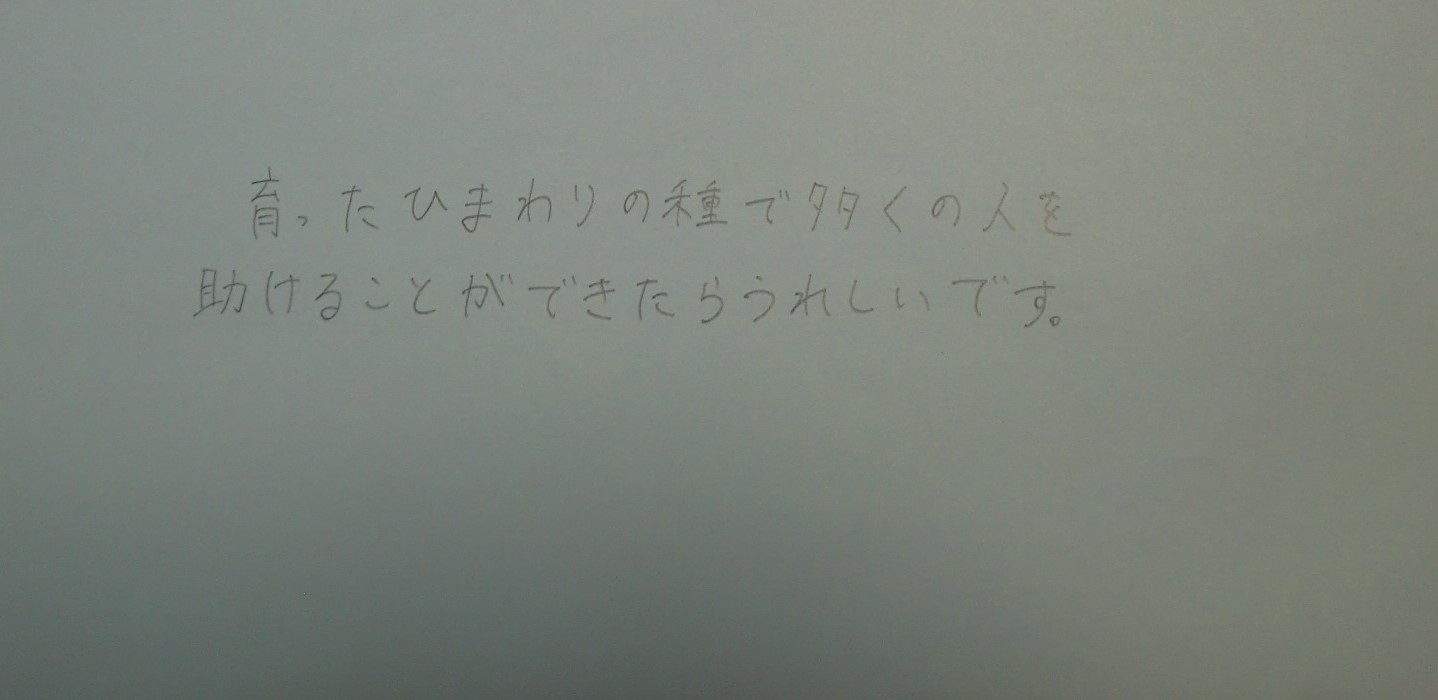 育ったひまわりの種で多くの人を
助けることができたらうれしいです。